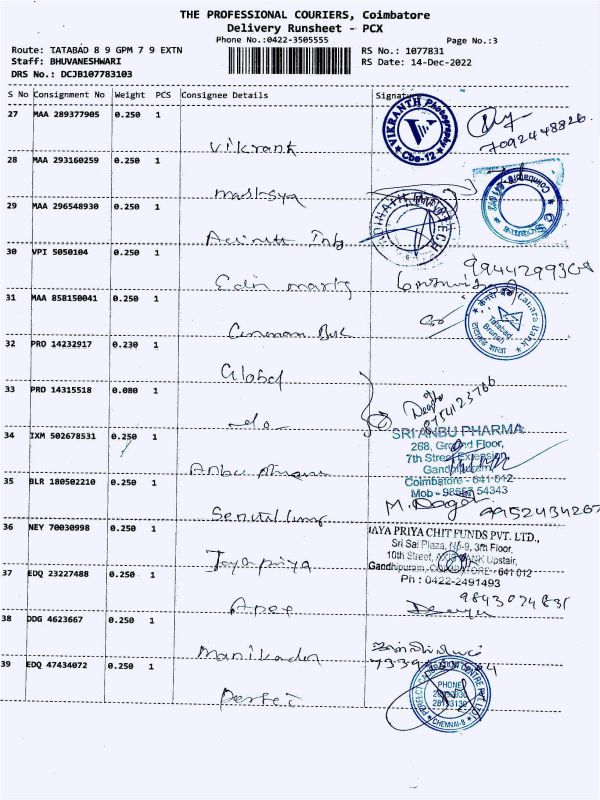 THE PROFESSIONAL COURIERS, Coimbatore
Delivery Runsheet - PCX
Phone No.:0422-3505555
Page No.:3
Route: TATABAD 8 9 GPM 7 9 EXTN
RS No.: 1077831
Staff: BHUVANESHWARI
RS Date: 14-Dec-2022
DRS No.: DCJB107783103
S No Consignment No Weight PCS Consignee Details Signature
27 MAA 289377905 0.250 1
VIKRANTH Photography
Cbe-12
7092448826
Vikrant
28 MAA 293160259 0.250 1
29 MAA 296548930 0.250 1
30 VPI 5050104 0.250 1
9944299308
31 MAA 858150041 0.250 1
Canara Bank
Tatabad
Branch
32 PRO 14232917 0.230 1
Global
33 PRO 14315518 0.080 1
8754123766
do
34 IXM 502678531 0.250 1
SRI ANBU PHARMA
268, Ground Floor,
7th Street Extension,
Gandhipuram
Coimbatore - 641 012
Mob - 98657 54343
35 BLR 180502210 0.250 1
9952434267
36 NEY 70030998 0.250 1
JAYA PRIYA CHIT FUNDS PVT. LTD.,
Sri Sai Plaza, No-9, 3rd Floor,
10th Street, AXIS BANK Upstair,
Gandhipuram, COIMBATORE - 641 012
Ph : 0422-2491493
Jayapriya
37 EDQ 23227488 0.250 1
Apex
38 DDG 4623667 0.250 1
Manikadan
39 EDQ 47434072 0.250 1
PHONE
CHENNAI-8